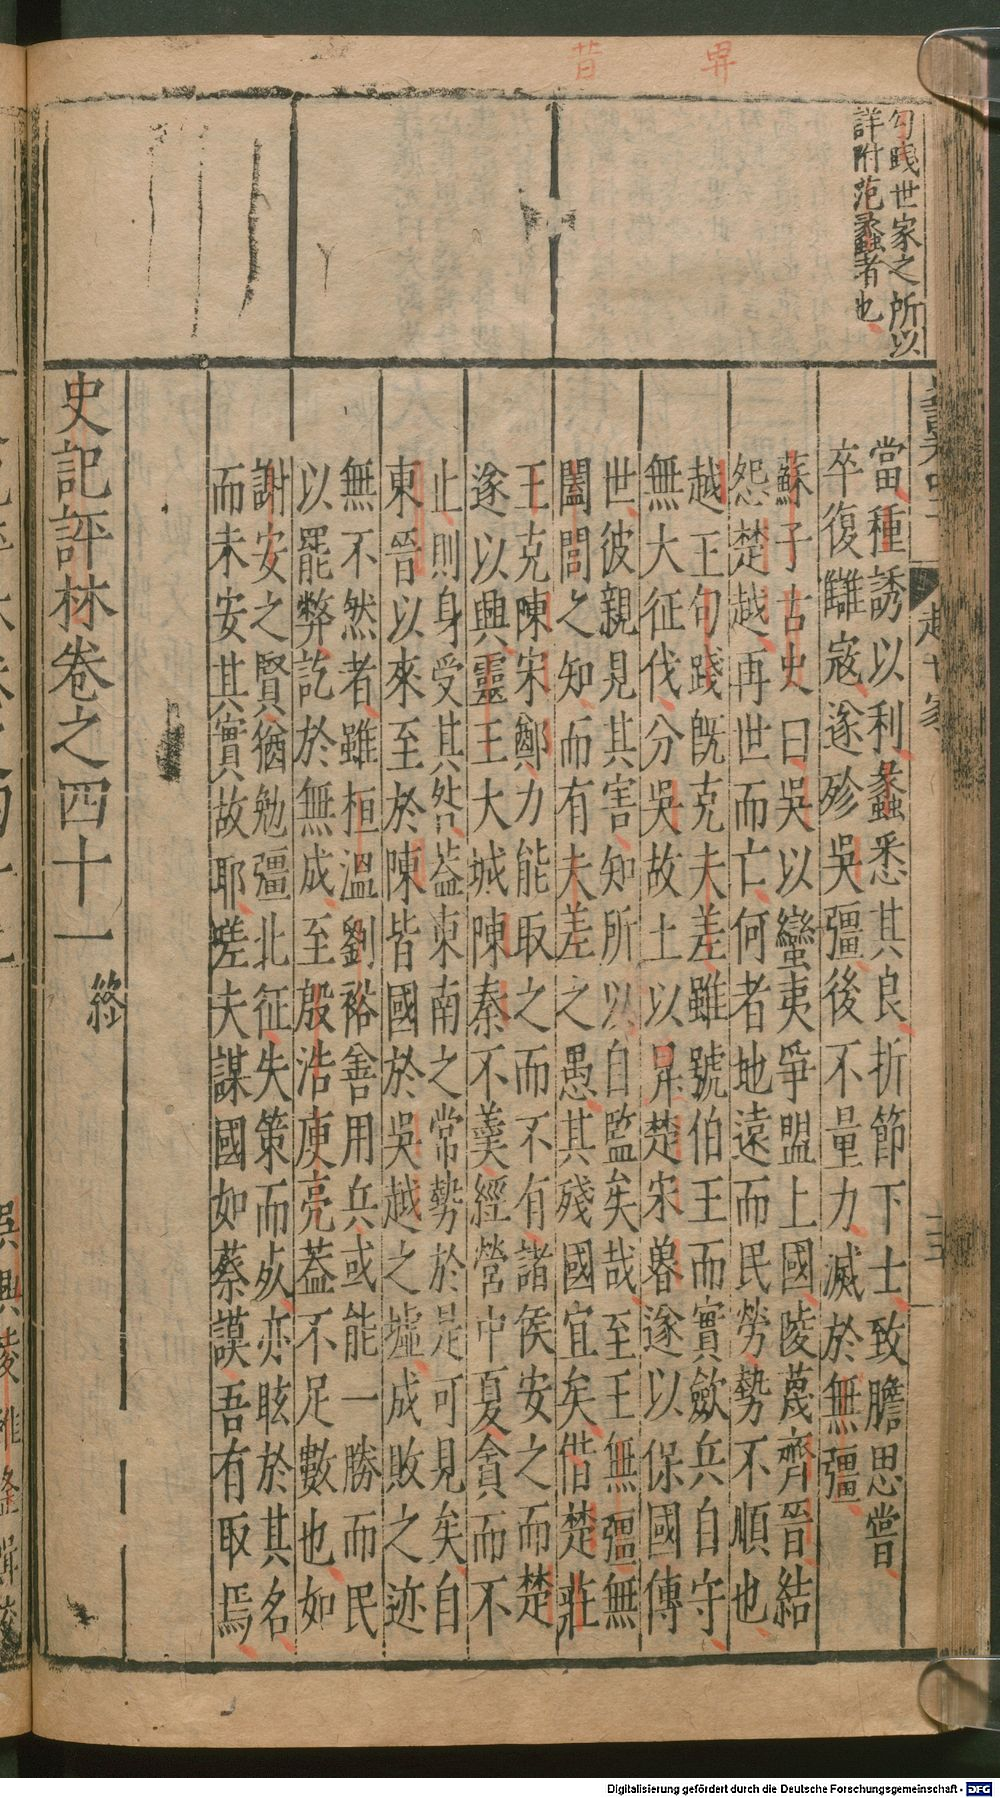 昔
畀
勾踐世家之所以
詳附范蠡者也
當種誘以利蠡悉其良折節下士致膽思嘗
卒復讎寇遂殄吳彊後不量力滅於無彊
蘇子古史曰吳以蠻夷爭盟上國陵蔑齊晉結
怨楚越再世而亡何者地遠而民勞勢不順也
越王句踐旣克夫差雖號伯王而實歛兵自守
無大征伐分吳故土以畀楚宋魯遂以保國傳
世彼親見其害知所以自監矣哉至王無彊無
闔閭之知而有夫差之愚其殘國宜矣偕楚莊
王克陳宋鄭力能取之而不有諸侯安之而楚
遂以興靈王大城陳秦不羹經營中夏貪而不
止則身受其咎葢東南之常勢於是可見矣自
東晉以來至於陳皆國於吳越之墟成敗之迹
無不然者雖桓溫劉裕善用兵或能一勝而民
以罷弊訖於無成至殷浩庾亮葢不足數也如
謝安之賢猶勉彊北征失策而死亦眩於其名
而未安其實故耶嗟夫謀國如蔡謨吾有取焉
史記評林卷之四十一 終
吳興凌稚隆輯校
Digitalisierung gefördert durch die Deutsche Forschungsgemeinschaft - DFG